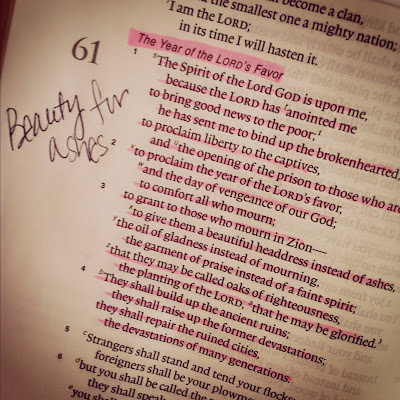 the smallest one a mighty nation;
I am the LORD;
in its time I will hasten it.
61
The Year of the LORD's Favor
Beauty for
ashes
1 s The Spirit of the Lord GOD is upon me,
because the LORD has t anointed me
to bring good news to the poor; 1
he has sent me to bind up the brokenhearted,
to proclaim liberty to the captives,
2 and u the opening of the prison to those who are
v to proclaim the year of the LORD's favor,
w and the day of vengeance of our God;
to comfort all who mourn;
3 to grant to those who mourn in Zion—
x to give them a beautiful headdress instead of ashes,
y the oil of gladness instead of mourning,
the garment of praise instead of a faint spirit;
z that they may be called oaks of righteousness,
the planting of the LORD, a that he may be glorified. 3
4 b They shall build up the ancient ruins;
they shall raise up the former devastations;
they shall repair the ruined cities,
the devastations of many generations.
5 c Strangers shall stand and tend your flocks;
foreigners shall be your plowmen
6 d but you shall be called the
they shall
e you shall